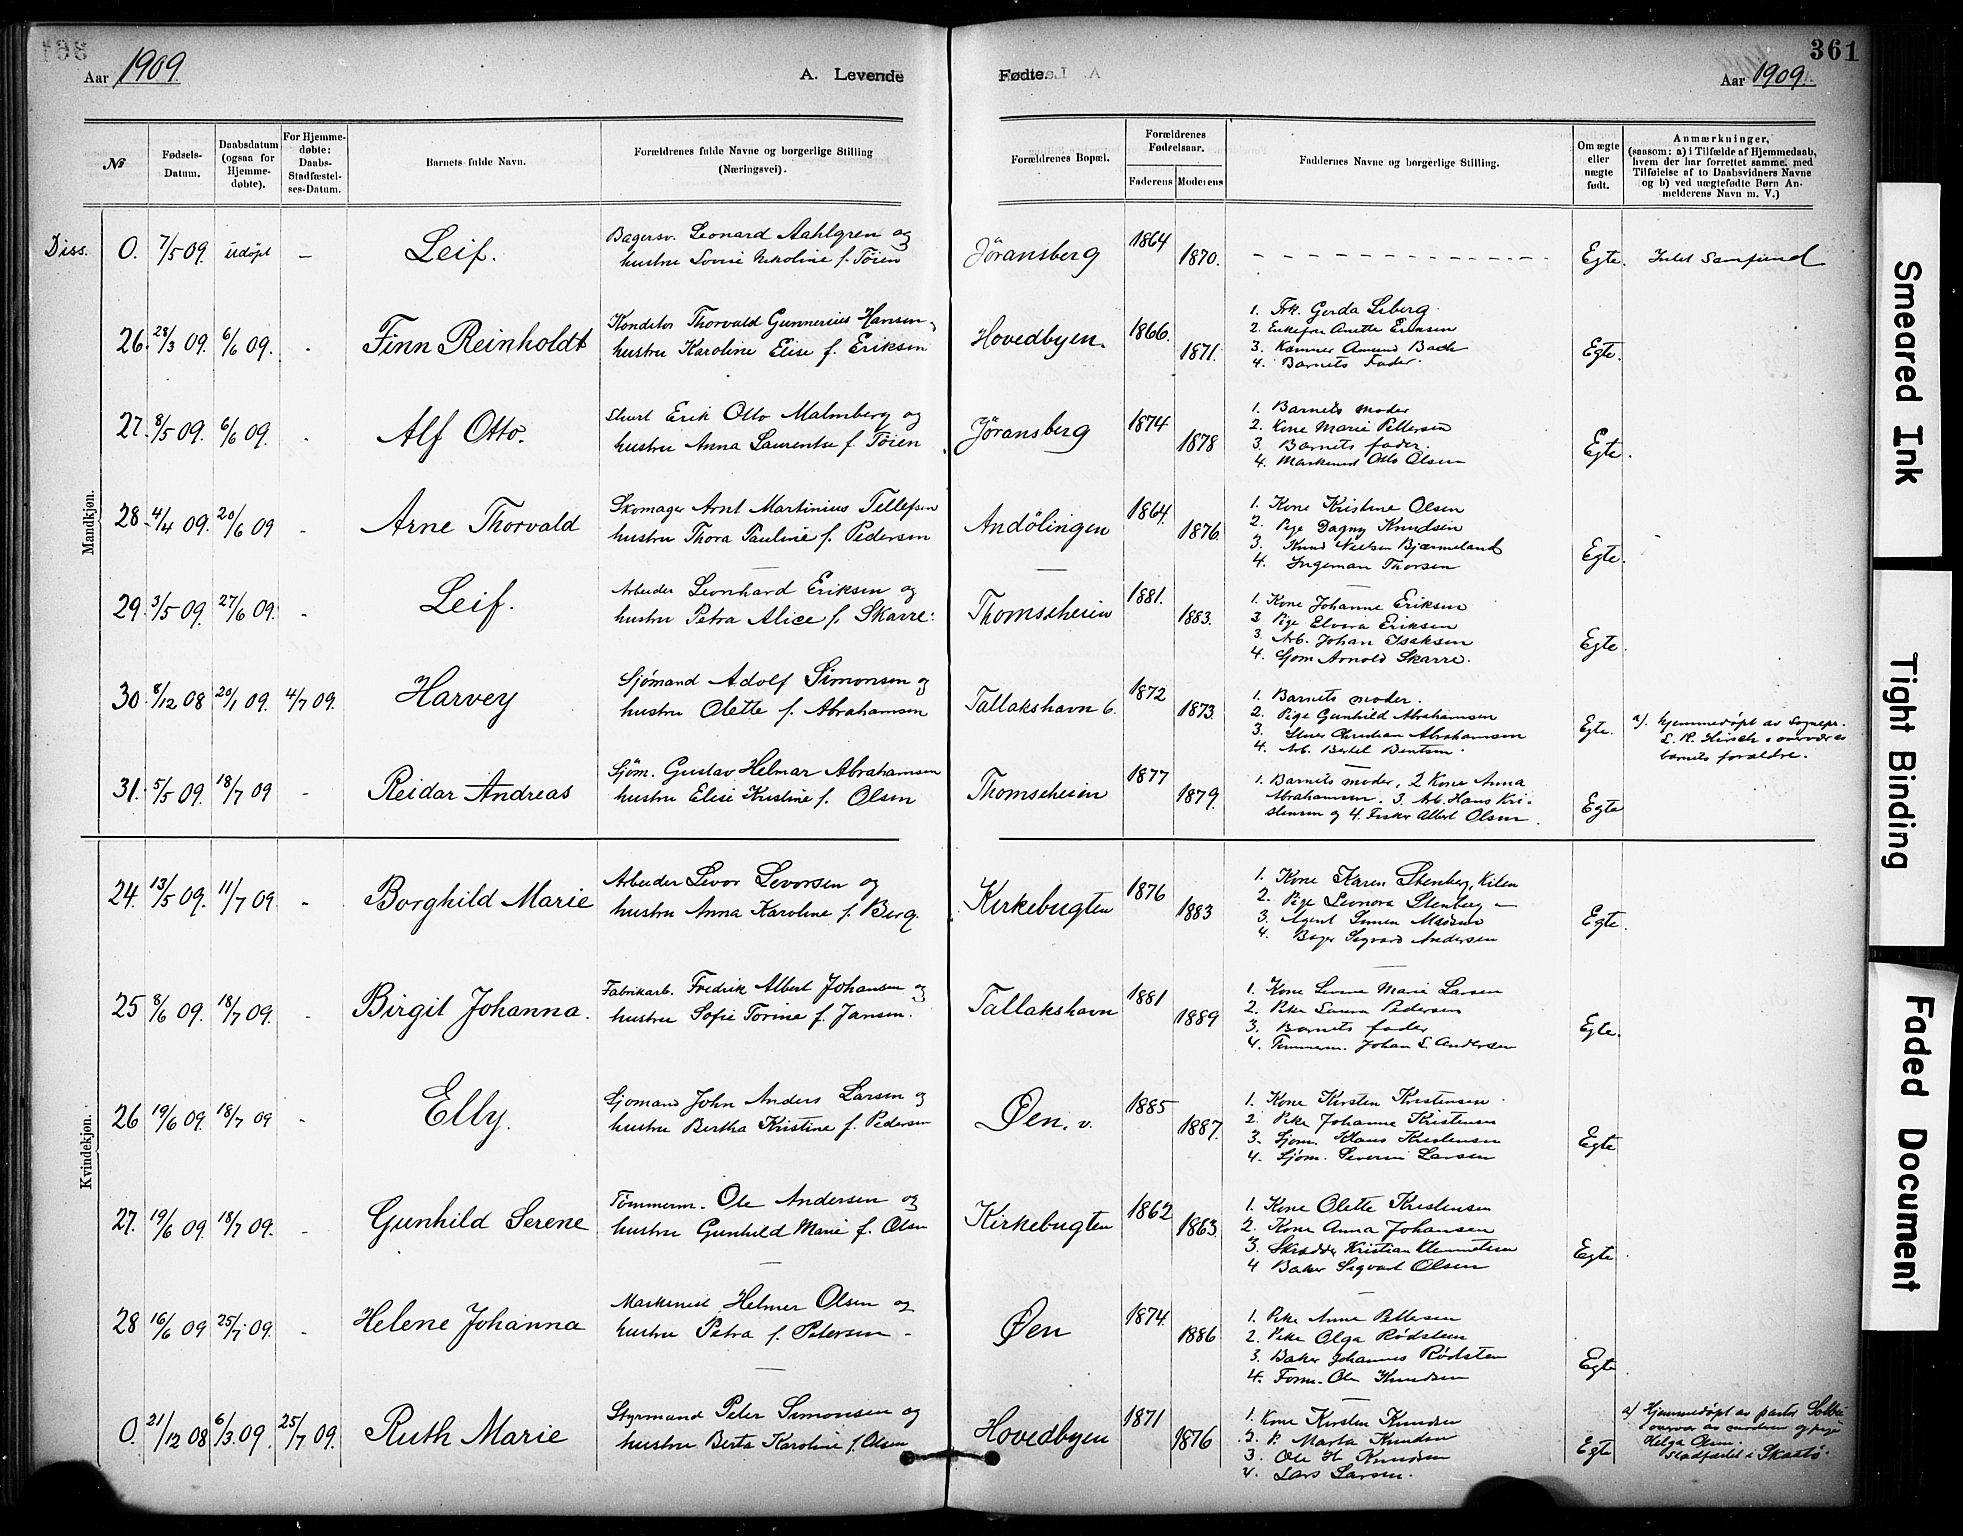 361
Aar 1909.
A. Levende
Fødte.
Aar 1909.
No
Fødsels-
Datum.
Daabsdatum
(ogsaa for
Hjemme-
døbte).
For Hjemme-
døbte:
Daabs-
Stadfæstel-
ses-Datum.
Barnets fulde Navn.
Forældrenes fulde Navne og borgerlige Stilling
(Næringsvei).
Forældrenes Bopæl.
Forældrenes
Fødselsaar.
Faderens Moderens
Faddernes Navne og borgerlige Stilling.
Om ægte
eller
uægte
født.
Anmærkninger,
(saasom: a) i Tilfælde af Hjemmedaab,
hvem der har forrettet samme, med
Tilføielse af to Daabsvidners Navne
og b) ved uægtefødte Børn An-
melderens Navn m. V.)
Mandkjøn.
Diss. 0. 7/5 09. udøpt – Leif.
Bagersv. Leonard Aahlgren og
hustru Lovise Nikoline f. Töien
Jøransberg 1864 1870. Egte. Intet Samfund
26. 28/3 09. 6/6 09. Finn Reinholdt
Konditor Thorvald Gunnerius Hansen
hustru Karoline Elise f. Eriksen
Hovedbyen. 1866. 1871.
1. Frk. Gerda Liberg.
2. Enkefru Anette Eriksen
3. Kæmner Amund Bach
4. Barnets Fader.
Egte.
27. 8/5 09. 6/6 09. Alf Otto.
Erik Otto Malmberg og
hustru Anna Laurentse f. Töien
Jøransberg 1874 1878
1. Barnets moder
2. Kone Marie Pettersen
3. Barnets fader.
4. Maskinist Otto Olsen
Egte.
28. 4/4 09. 20/6 09 Arne Thorvald
Skomager Arnt Martinius Tellefsen
hustru Thora Pauline f. Pedersen
Andölingen 1864. 1876.
1. Kone Kristine Olsen
2. Pige Dagny Knudsen
3. Knud Nielsen Bjærmeland
4. Ingeman Thorsen
Egte.
29. 3/5 09. 27/6 09. Leif.
Arbeider Leonhard Eriksen og
hustru Petra Alice f. Skarre.
Thomesheien 1881. 1883.
1. Kone Johanne Eriksen
2. Pige Elvira Eriksen
3. Arb. Johan Isaksen
4. Sjöm Arnold Skarre.
Egte.
30. 8/12 08 20/1 09. 4/7 09. Harvey
Sjömand Adolf Simonsen og
hustru Olette f. Abrahamsen
Tallakshavn 6. 1872 1873.
1. Barnets moder.
2. Pige Gunhild Abrahamsen
3. Christian Abrahamsen
4. Arb. Bertel Bentsen.
Egte. a). hjemmedøpt av Sognepr.
L. R. Hirsch i overvær av
barnets foreldre.
31. 5/5 09. 18/7 09 Reidar Andreas
Sjöm. Gustav Helmar Abrahamsen
hustru Elise Kristine f. Olsen
Thomesheien 1877 1879.
1. Barnets moder, 2 Kone Anna
Abrahamsen. 3. Arb. Hans Kri-
stensen og 4. Fisker Albert Olsen.
Egte
Kvindekjøn.
24. 13/5 09. 11/7 09 Borghild Marie
Arbeider Levor Levorsen og
hustru Anna Karoline f. Berg.
Kirkebugten 1876 1883
1. Kone Karen Stenberg, Kilen
2. Pige Leonora Stenberg –
3. Agent Simen Madsen
4. Bager Sigvard Andersen
Egte.
25 8/6 09. 18/7 09. Birgit Johanna.
Fabrikarb. Fredrik Albert Johansen og
hustru Sofie Torine f. Jansen.
Tallakshavn 1881 1889
1. Kone Marie Larsen
2. Pike Laura Pedersen
3. Barnets fader
4. Tømmerm. Johan L. Andersen
Egte.
26 19/6 09. 18/7 09 Elly.
Sjømand John Anders Larsen og
hustru Bertha Kristine f. Pedersen
Øen. v. 1885 1887.
1. Kone Kirsten Kristensen.
2. Pike Johanne Kristensen
3. Sjöm. Klaus Kristensen
4. Sjöm. Severin Larsen
Egte
27. 19/6 09. 18/7 09. Gunhild Serene
Tömmerm. Ole Andersen og
hustru Gunhild Marie f. Olsen
Kirkebugten 1862 1863.
1. Kone Olette Kristensen
2. Kone Anna Johansen
3. Skrædder Kristian Klemmetsen
4 Baker Sigvart Olsen
Egte.
28 16/6 09 25/7 09. Helene Johanna
Maskinist Helmer Olsen og
hustru Petra f. Petersen –
Øen 1874. 1886
1. Pike Anne Pettersen
2. Pike Olga Rödsten
3. Baker Johannes Rödsten
4. Form. Ole Knudsen
Egte
0. 21/12 08 6/3 09. 25/7 09. Ruth Marie
Styrmand Peter Simonsen og
hustru Berta Karoline f. Olsen
Hovedbyen 1871 1876
1. Kone Kirsten Knudsen
2. P. Marta Knudsen
3. Ole H. Knudsen
4. Lars Larsen.
Egte a/ Hjemmedøpt av pastor
Helga Olsen.
Stadfæstet i Skaatö.
Smeared Ink
Tight Binding
Faded Document